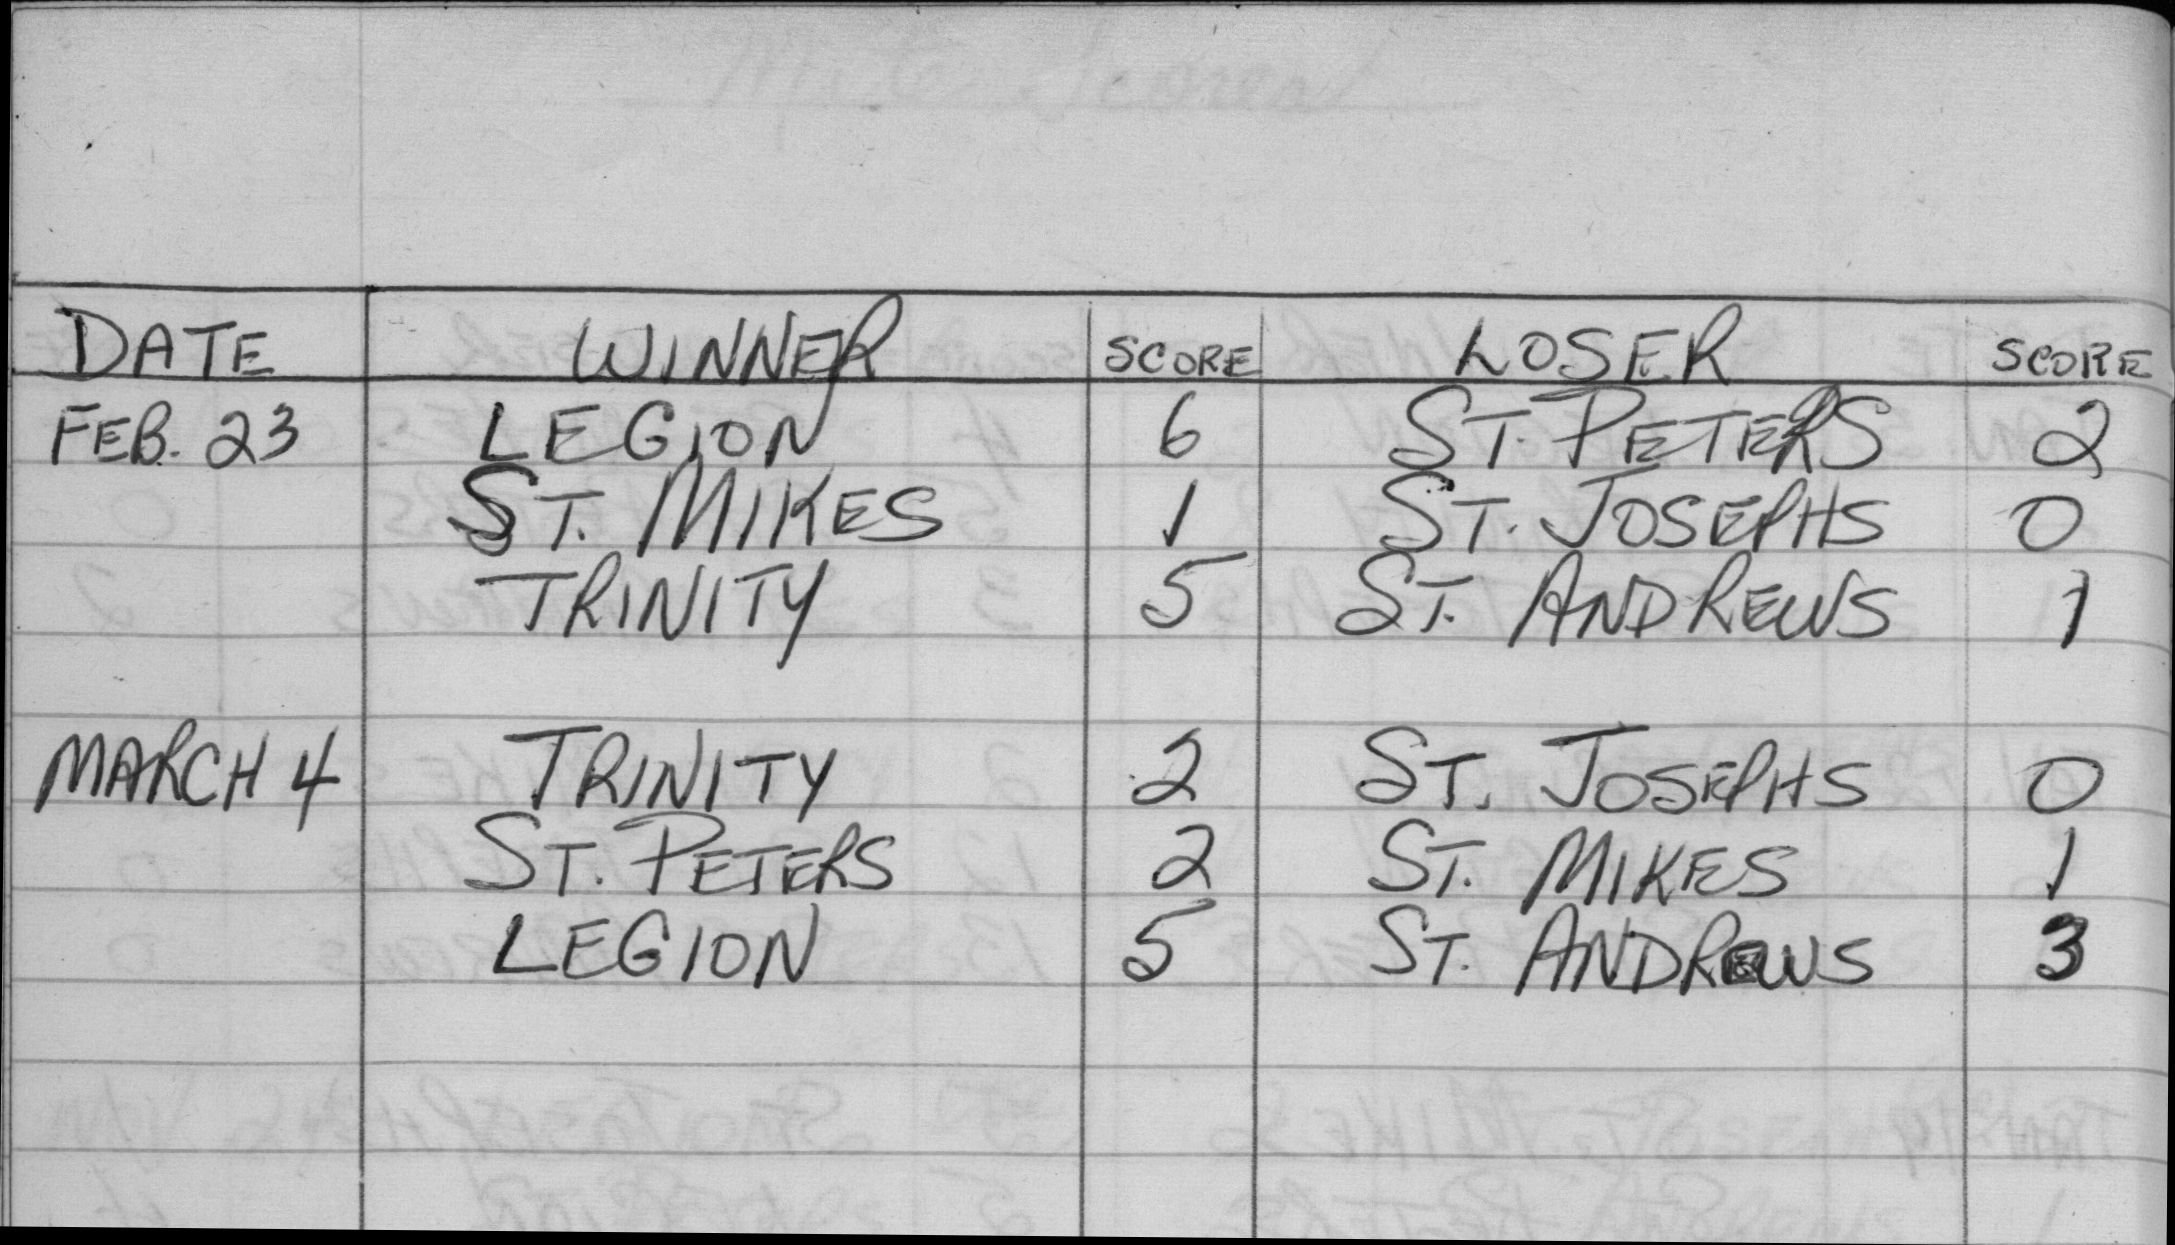 DATE WINNER SCORE LOSER SCORE
FEB. 23 LEGION 6 ST. PETERS 2
ST. MIKES 1 ST. JOSEPHS 0
TRINITY 5 ST. ANDREWS 1
MARCH 4 TRINITY 2 ST. JOSEPHS 0
ST. PETERS 2 ST. MIKES 1
LEGION 5 ST. ANDREWS 3